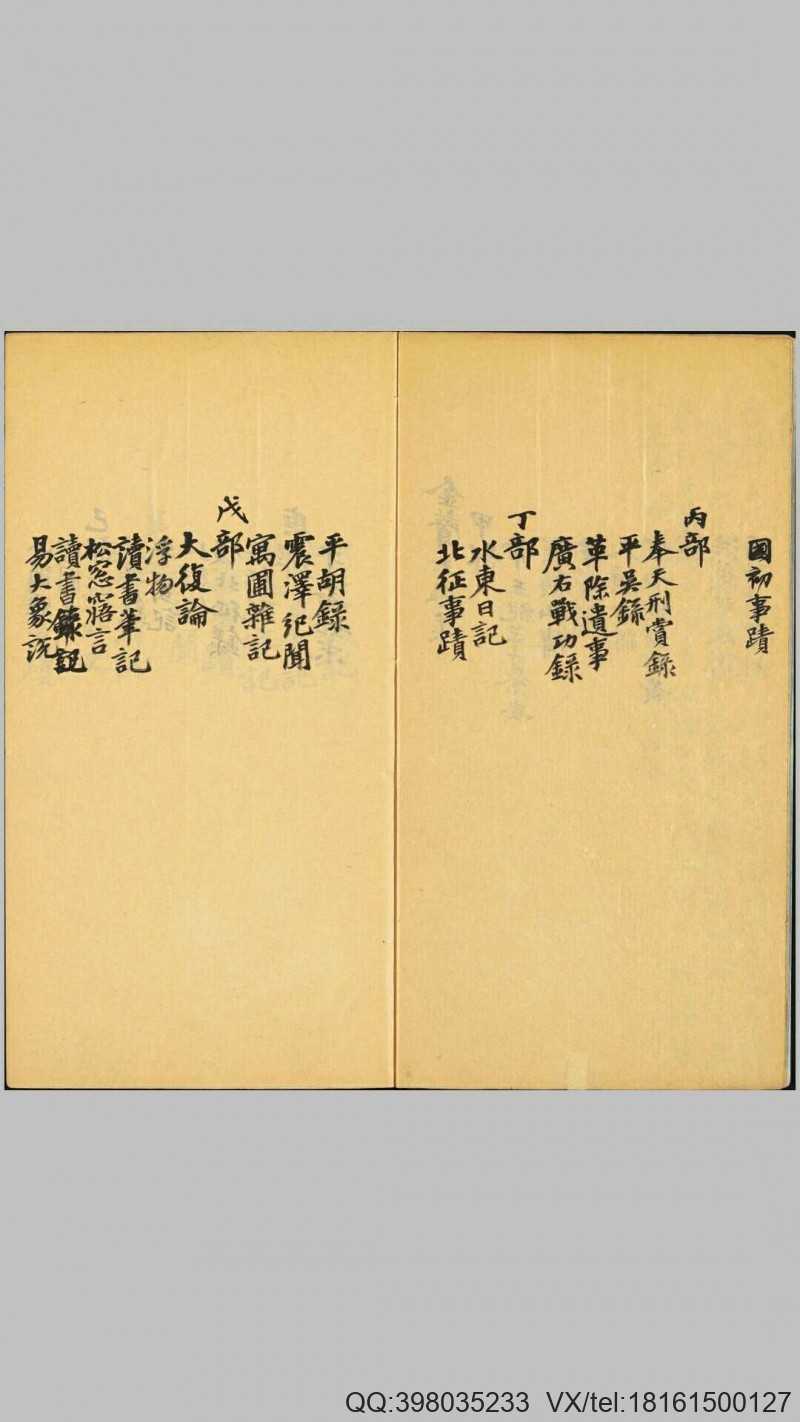 國初事蹟
丙部
奉天刑賞錄
平吳錄
革除遺事
廣右戰功錄
丁部
水東日記
北征事蹟
平胡錄
震澤紀聞
寓圃雜記
戊部
大復論
浮物
讀書筆記
松窓寤言
讀書錄
易大象說
QQ:398035233 VX/tel:18161500127